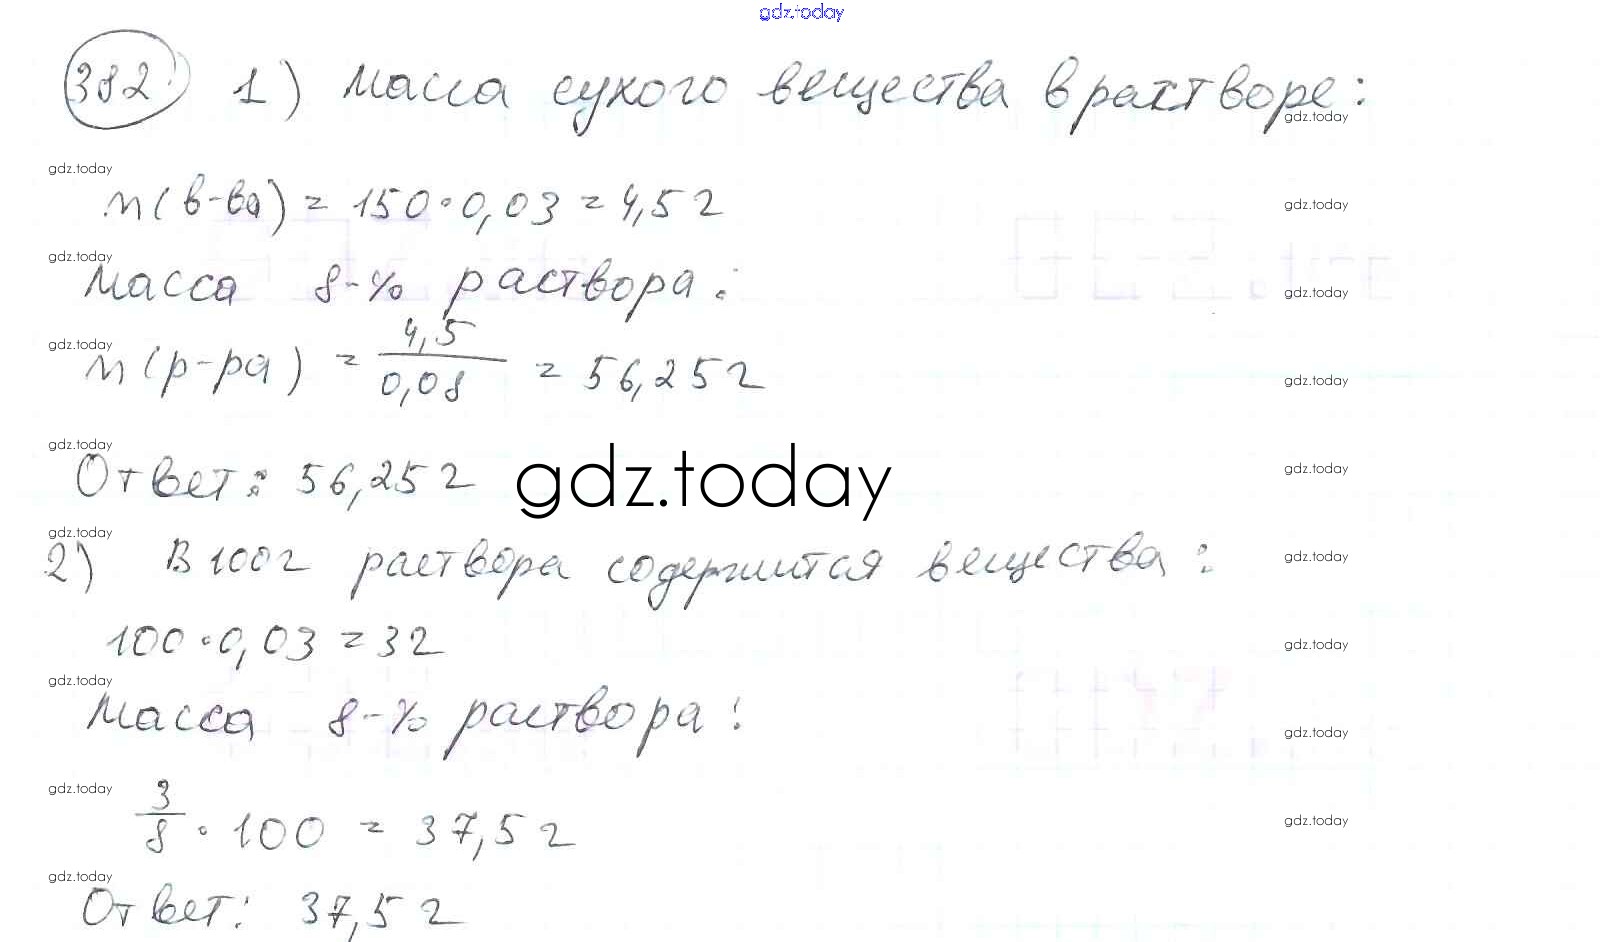 gdz.today
382 1) Масса сухого вещества в растворе:
gdz.today
m(в-ва) = 150·0,03 = 4,5 г
gdz.today
gdz.today
Масса 8-% раствора:
gdz.today
gdz.today
m(р-ра) = 4,5/0,08 = 56,25 г
gdz.today
gdz.today
Ответ: 56,25 г
gdz.today
gdz.today
gdz.today
2) В 100 г раствора содержится вещества:
gdz.today
100·0,03 = 3 г
gdz.today
gdz.today
Масса 8-% раствора:
gdz.today
gdz.today
3/8 · 100 = 37,5 г
gdz.today
gdz.today
Ответ: 37,5 г